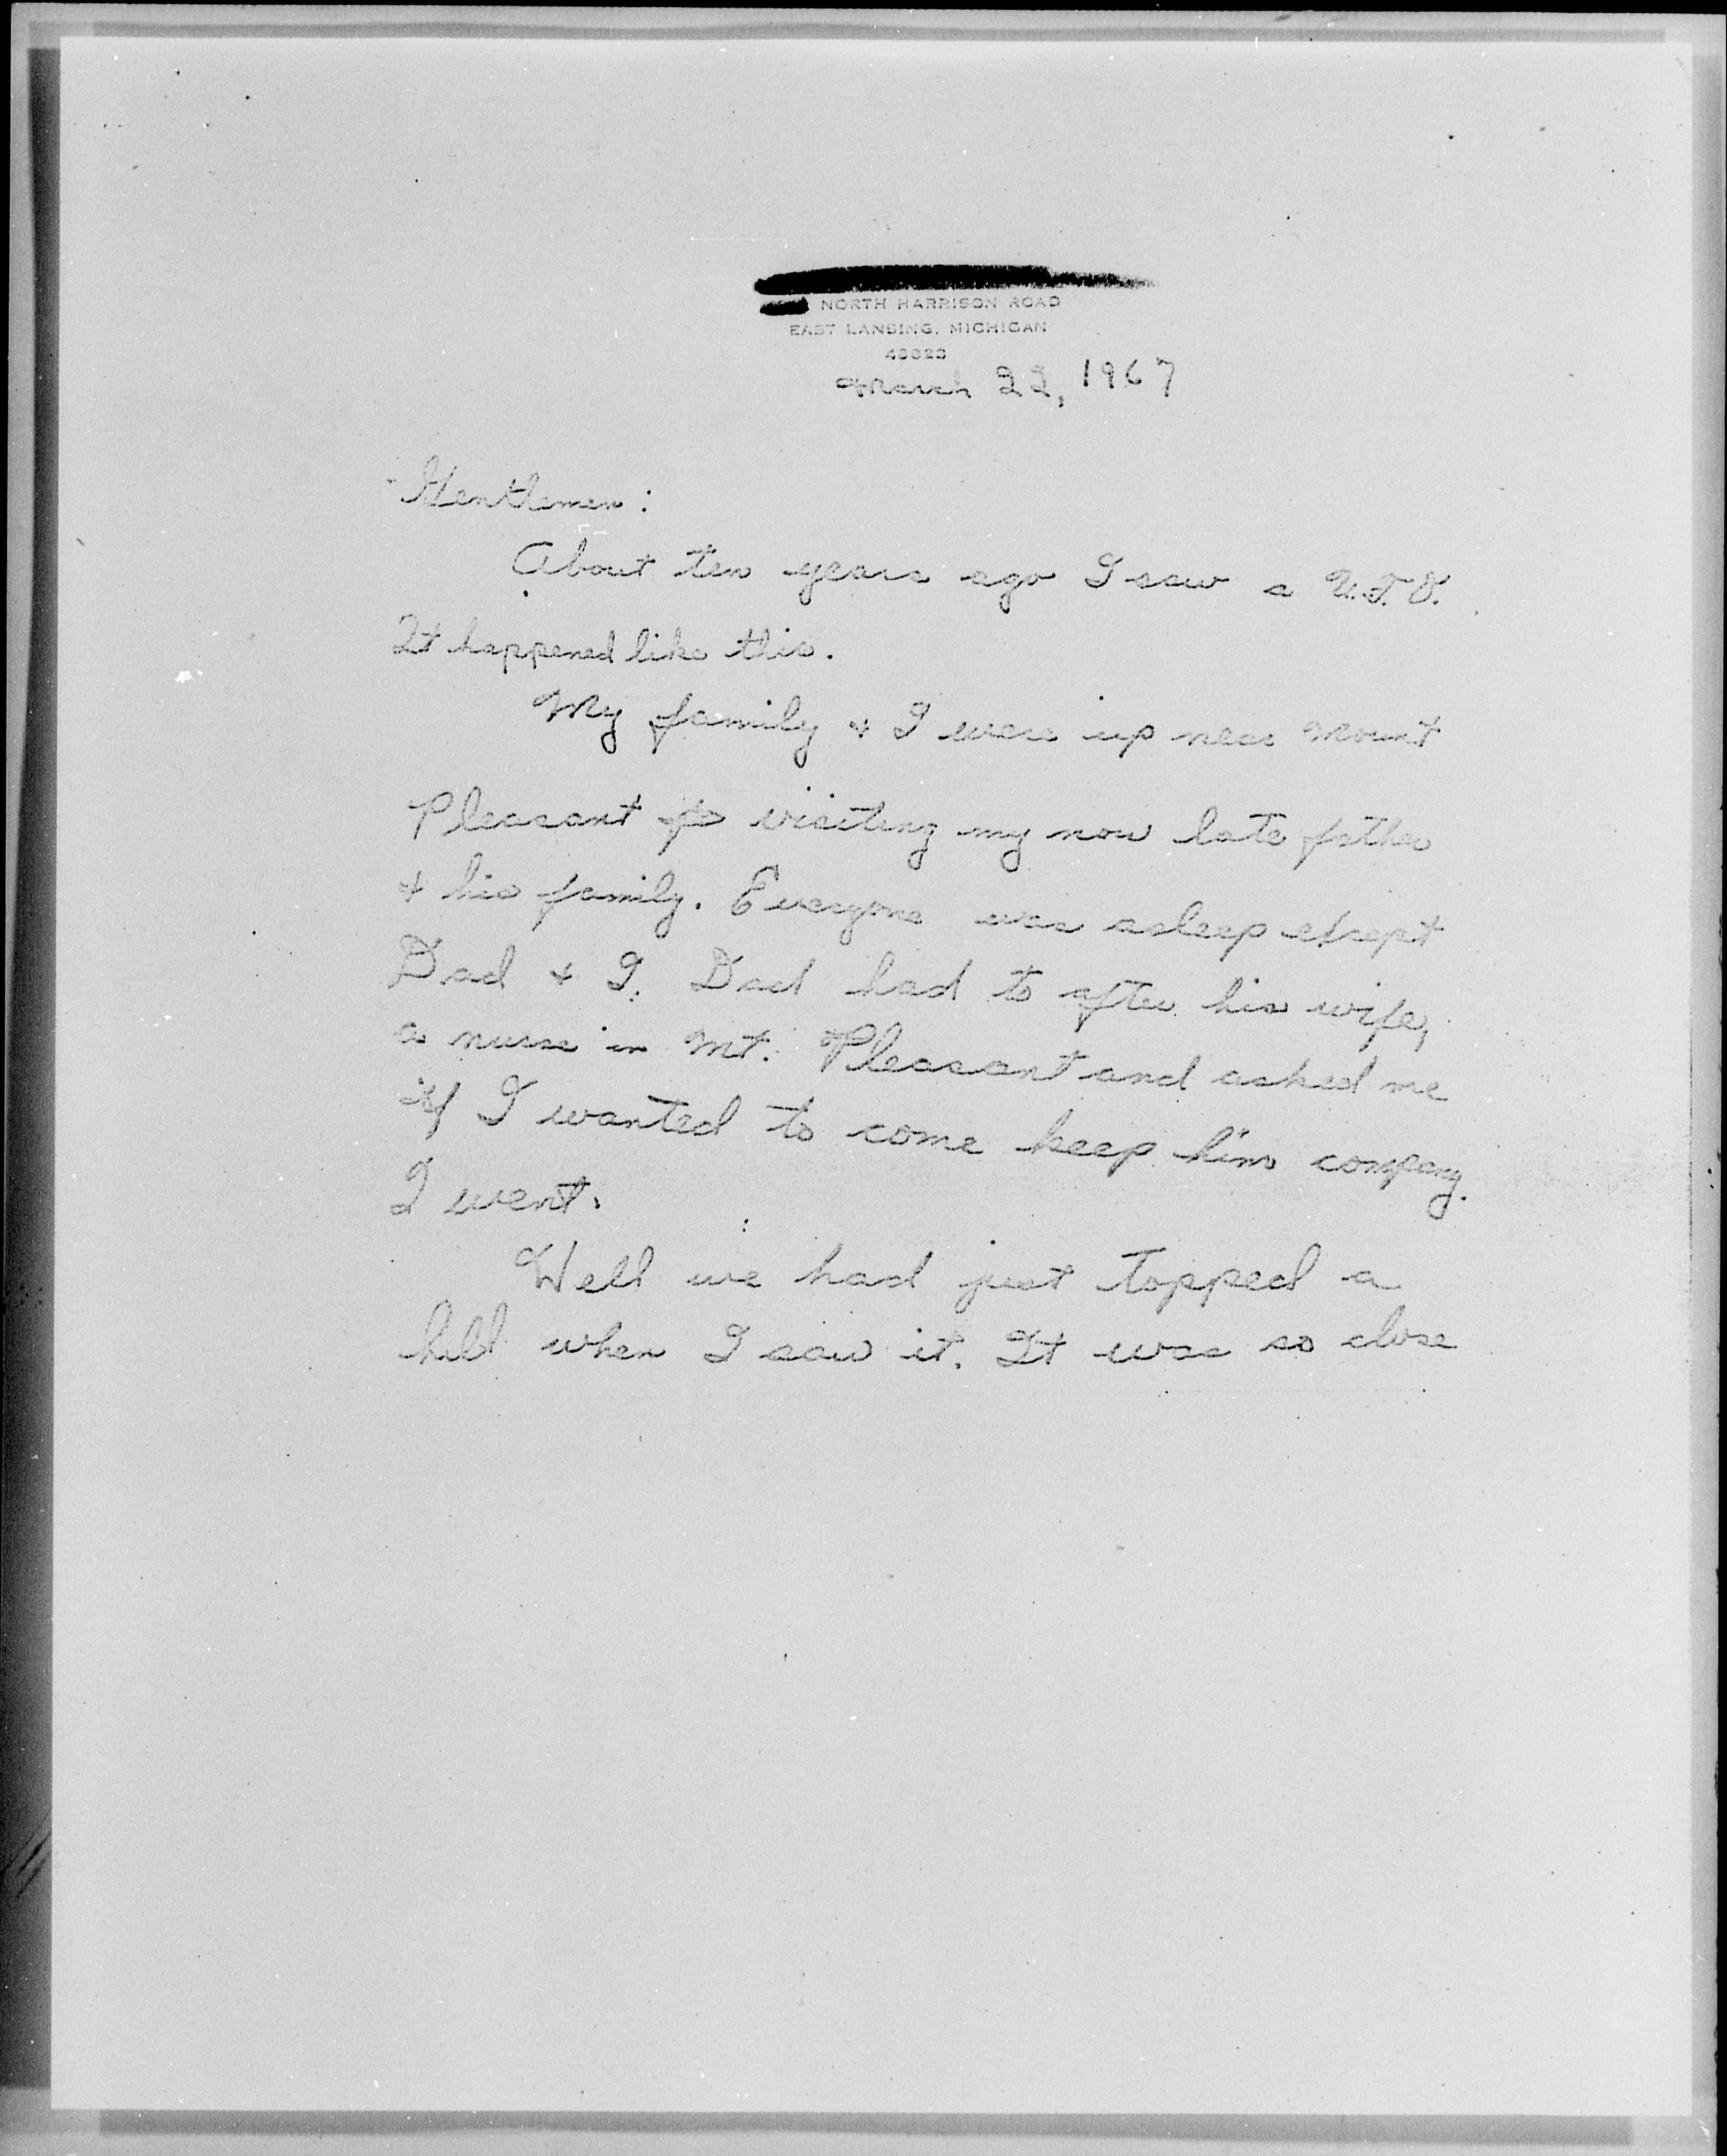 NORTH HARRISON ROAD
EAST LANSING, MICHIGAN
48823
March 22, 1967
Gentlemen:
About ten years ago I saw a U.F.O.
It happened like this.
My family & I were up near Mount
Pleasant visiting my now late father
& his family. Everyone was asleep except
Dad & I. Dad had to after his wife,
a nurse in Mt. Pleasant and asked me
if I wanted to come keep him company.
I went.
Well we had just topped a
hill when I saw it. It was so close